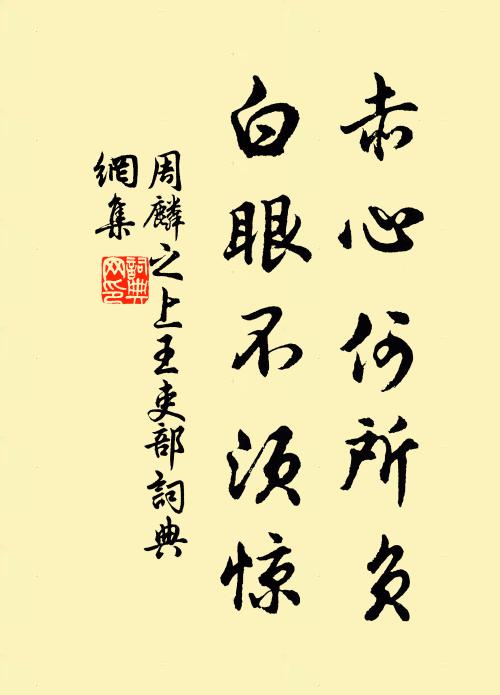 赤心何所负
白眼不须惊
周麟之上王吏部詞典
網集
詞典
网印